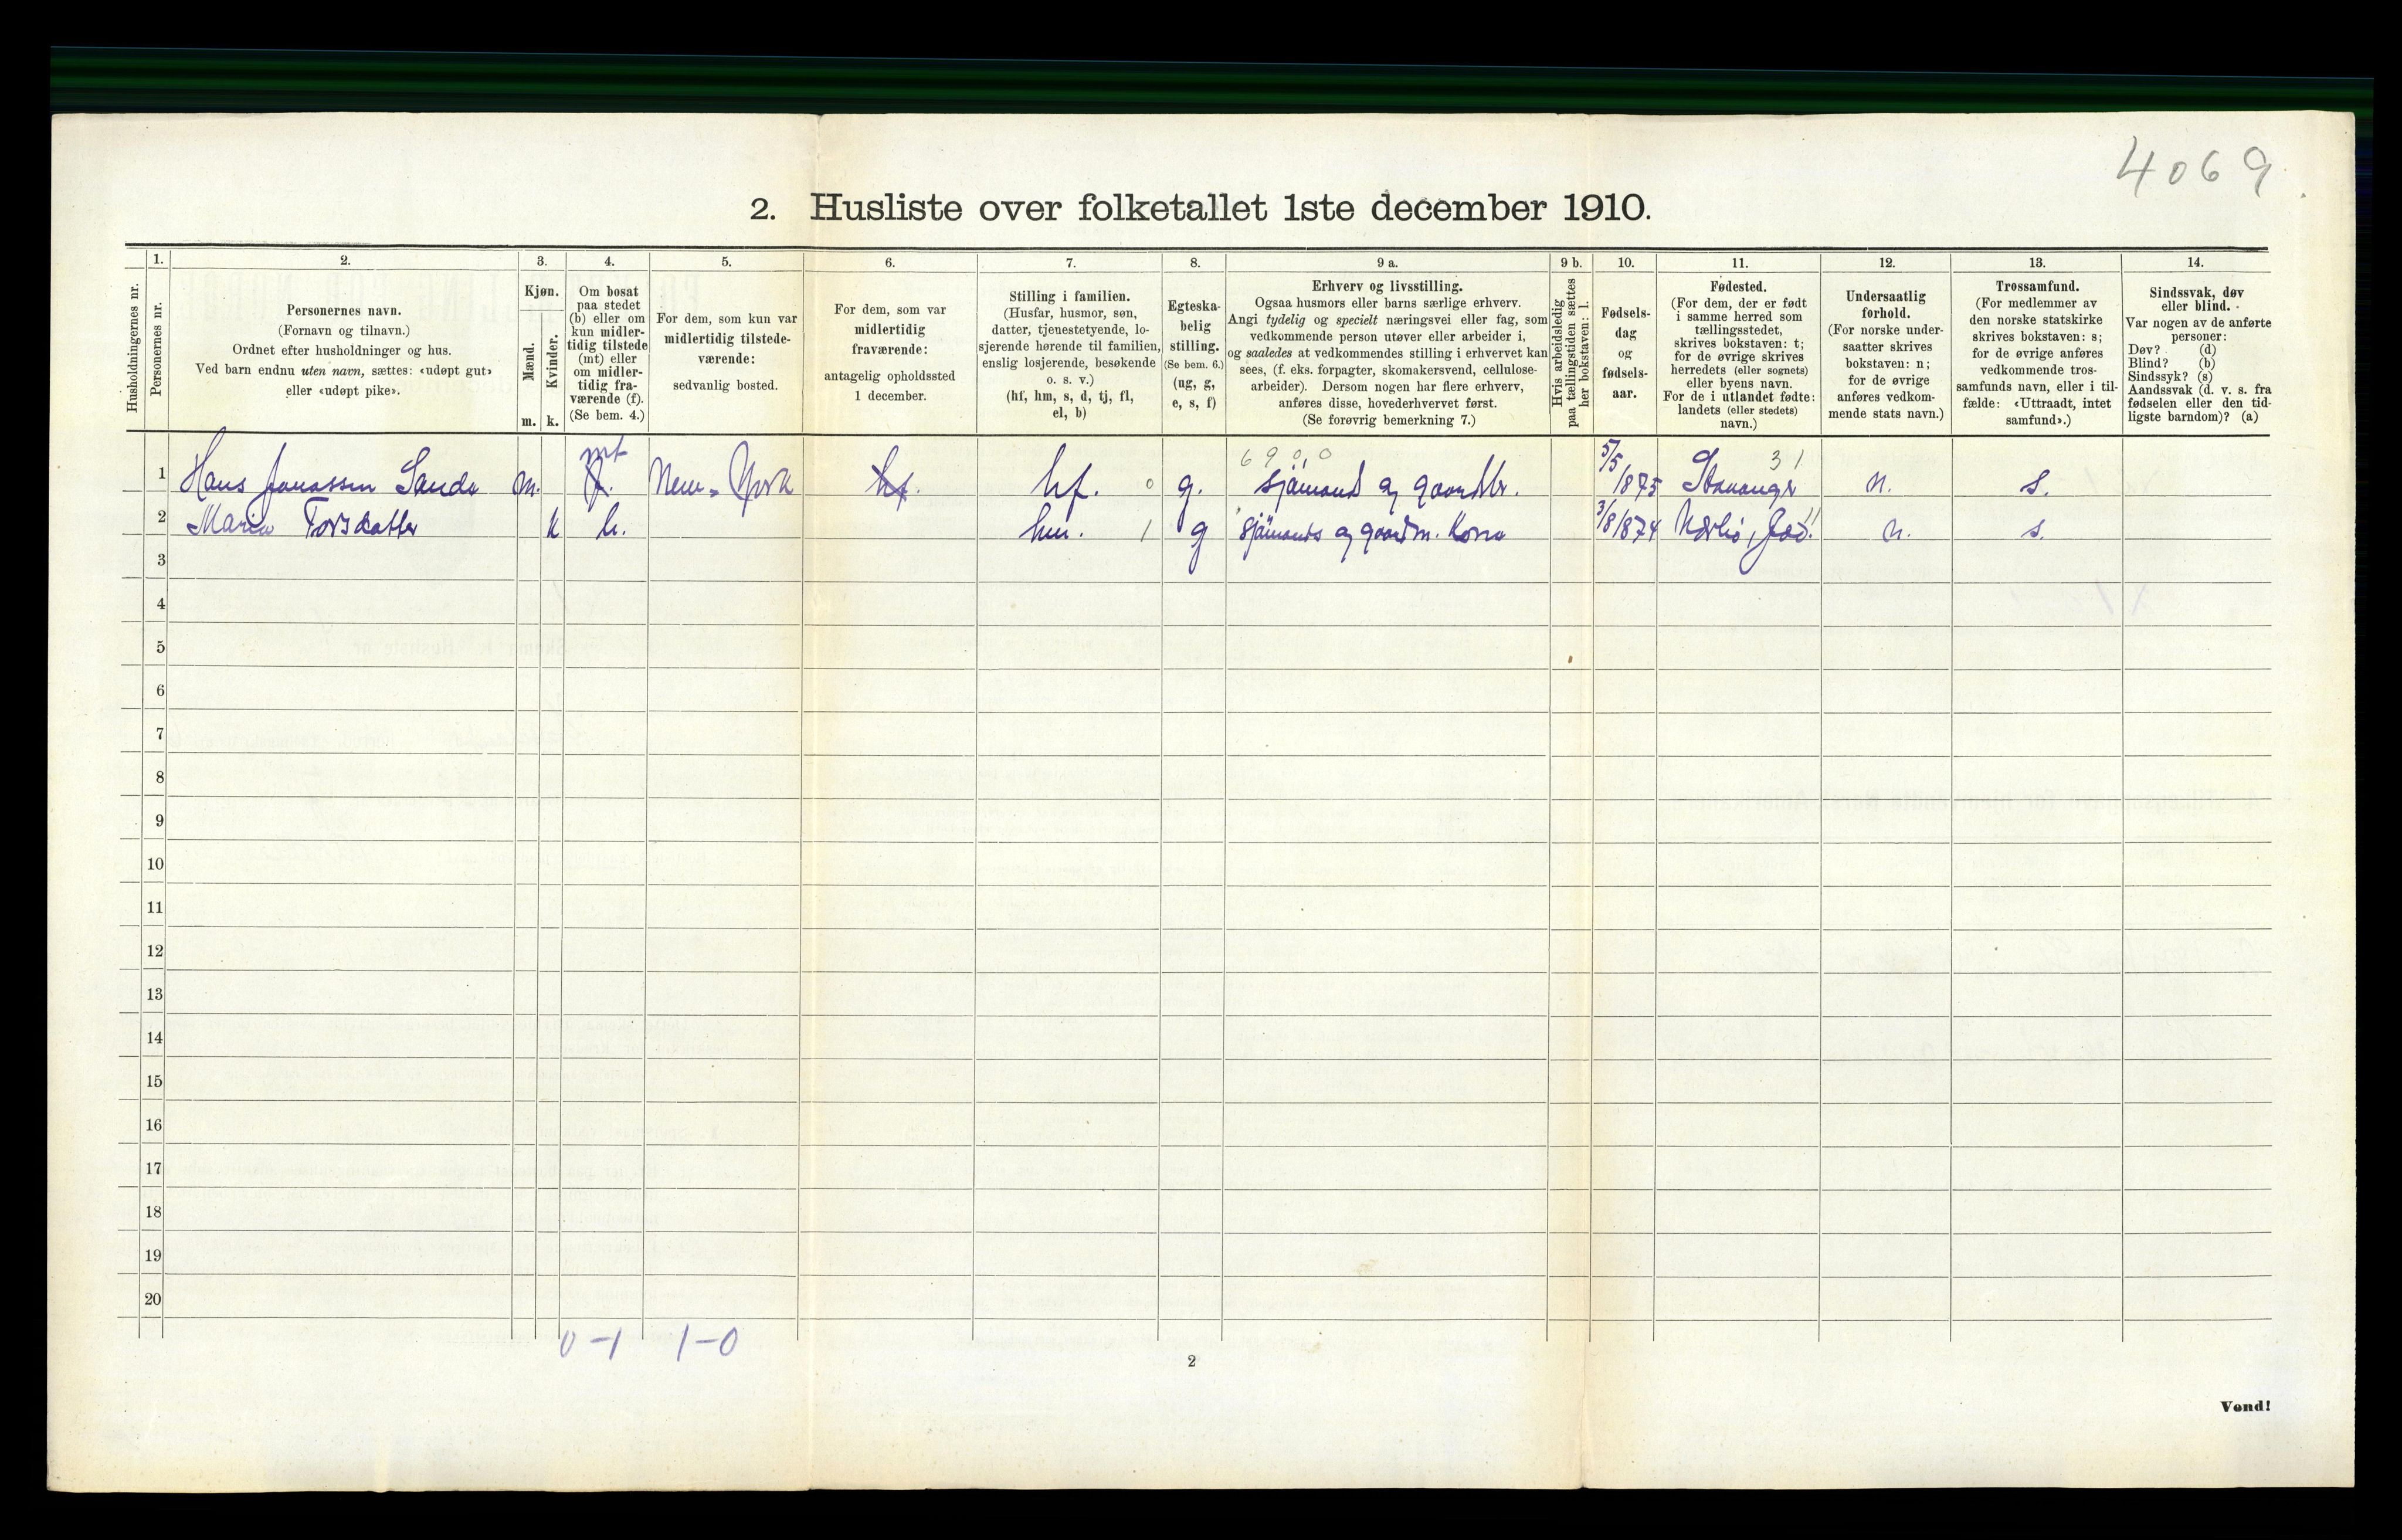 4069
2. Husliste over folketallet 1ste december 1910.
Husholdningernes nr.
1.
Personernes nr.
2.
Personernes navn.
(Fornavn og tilnavn.)
Ordnet efter husholdninger og hus.
Ved barn endnu uten navn, sættes: «udøpt gut»
eller «udøpt pike».
3.
Kjøn.
Mænd.
Kvinder.
m. k.
4.
Om bosat
paa stedet
(b) eller om
kun midler-
tidig tilstede
(mt) eller
om midler-
tidig fra-
værende (f).
(Se bem. 4.)
5.
For dem, som kun var
midlertidig tilstede-
værende:
sedvanlig bosted.
6.
For dem, som var
midlertidig
fraværende:
antagelig opholdssted
1 december.
7.
Stilling i familien.
(Husfar, husmor, søn,
datter, tjenestetyende, lo-
sjerende hørende til familien,
enslig losjerende, besøkende
o. s. v.)
(hf, hm, s, d, tj, fl,
el, b)
8.
Egteska-
belig
stilling.
(Se bem. 6.)
(ug, g,
e, s, f)
9 a.
Erhverv og livsstilling.
Ogsaa husmors eller barns særlige erhverv.
Angi tydelig og specielt næringsvei eller fag, som
vedkommende person utøver eller arbeider i,
og saaledes at vedkommendes stilling i erhvervet kan
sees, (f. eks. forpagter, skomakersvend, cellulose-
arbeider). Dersom nogen har flere erhverv,
anføres disse, hovederhvervet først.
(Se forøvrig bemerkning 7.)
9 b.
Hvis arbeidsledig
paa tællingstiden sættes
her bokstaven: l.
10.
Fødsels-
dag
og
fødsels-
aar.
11.
Fødested.
(For dem, der er født
i samme herred som
tællingsstedet,
skrives bokstaven: t;
for de øvrige skrives
herredets (eller sognets)
eller byens navn.
For de i utlandet fødte:
landets (eller stedets)
navn.)
12.
Undersaatlig
forhold.
(For norske under-
saatter skrives
bokstaven: n;
for de øvrige
anføres vedkom-
mende stats navn.)
13.
Trossamfund.
(For medlemmer av
den norske statskirke
skrives bokstaven: s;
for de øvrige anføres
vedkommende tros-
samfunds navn, eller i til-
fælde: «Uttraadt, intet
samfund».)
14.
Sindssvak, døv
eller blind.
Var nogen av de anførte
personer:
Døv? (d)
Blind? (b)
Sindssyk? (s)
Aandssvak (d. v. s. fra
fødselen eller den tid-
ligste barndom)? (a)
mt 6900 5/5 31
1 Hans Jonassen Sande m. f. New-York hf. hf. 0 g. sjömand og gaardbr. /1875 Stavanger n. s.
2 Maria Torsdatter k b. hm. 1 g sjömands og gaardm. kona 3/8 1874 n. s.
3
4
5
6
7
8
9
10
11
12
13
14
15
16
17
18
19
20
0-1 1-0
2
Vend!